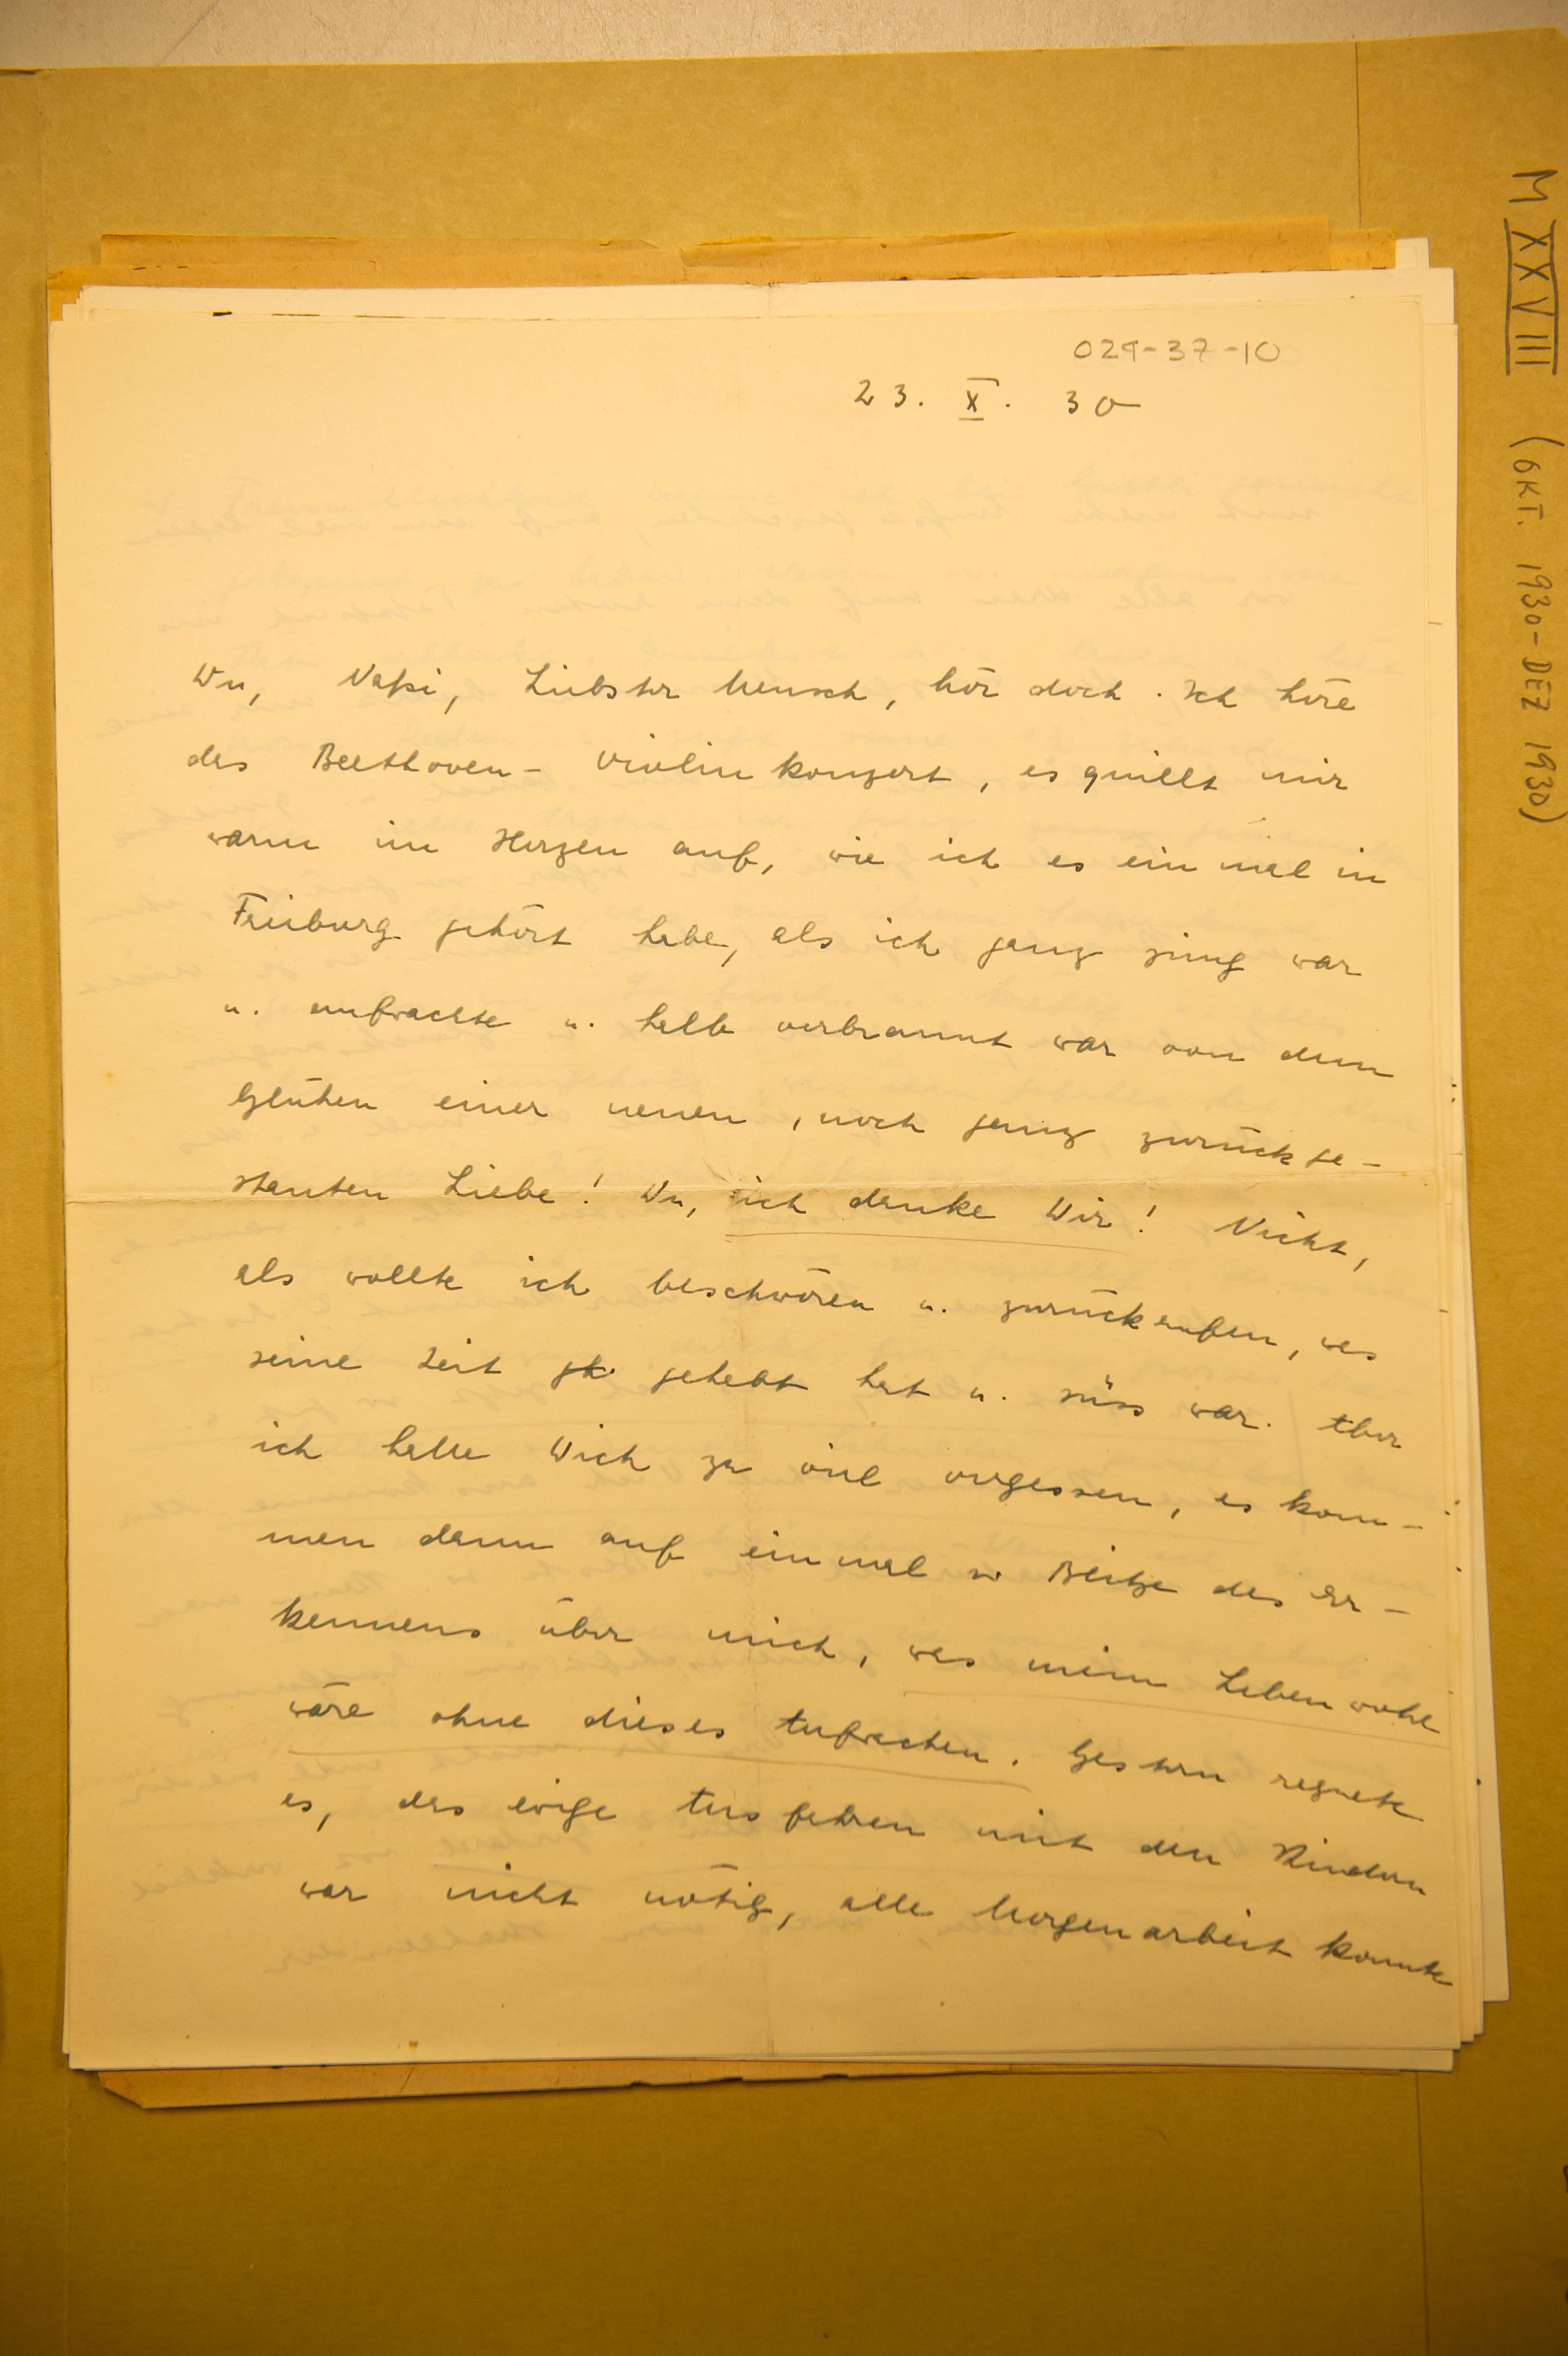 M XXVIII (OKT. 1930-DEZ 1930)
029-37-10
23. X. 30
Du, Napi, Liebster Mensch, hör doch. Ich höre
das Beethoven-Violinkonzert, es quillt mir
warm im Herzen auf, wie ich es einmal in
Freiburg gehört habe, als ich ganz jung war
u. aufwachte u. halb verbrannt war von dem
Glühen einer neuen, noch ganz zurückge-
stauten Liebe! Du, ich danke Dir! Nicht,
als wollte ich beschwören u. zurückrufen, was
seine Zeit gehabt hat u. süss war. Aber
ich hatte Dich zu viel vergessen, es kom-
men dann auf einmal so Blitze des Er-
kennens über mich, was mein Leben wohl
wäre ohne dieses Aufwachen. Gestern regnete
es, das ewige Ausfahren mit den Kindern
war nicht nötig, alle Morgenarbeit konnte